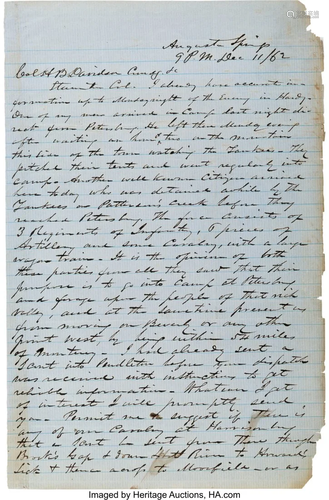 Augusta Springs
9 P.M. Dec 11/62
Col H B Davidson Comg &c
Col. I already have account in
formation up to Monday night of the Enemy in Hardy
One of my men arrived in Camp last night di
rect from Petersburg. He left there Monday evening
after waiting an hour & two on the Mountain
this side of the Town watching the Yankees. They
pitched their tents and went regularly into
Camp. Another well known Citizen arrived
here today who was detained while by the
Yankees on Pattersons Creek before they
reached Petersburg. The force consists of
3 Regiments of Infantry, 6 pieces of
Artillery and some Cavalry, with a large
wagon train. It is the opinion of both
these parties from all they saw that their
purpose is to go into Camp at Petersburg
and forage upon the people of that rich
Valley, and at the same time prevent us
from moving on Beverly or any other
point west, by being within 54 miles
of Monterey. I had already sent
Scout into Pendleton before your dispatch
was received with instruction to get
reliable information. Whatever I get
of interest I will promptly send
you. Permit me to suggest if there is
any of our Cavalry at Harrisonburg
that a Scout be sent from there through
Brock's Gap & down Lost River to Howards
Lick & thence across to Moorefield - or as
Imaged by Heritage Auctions, HA.com